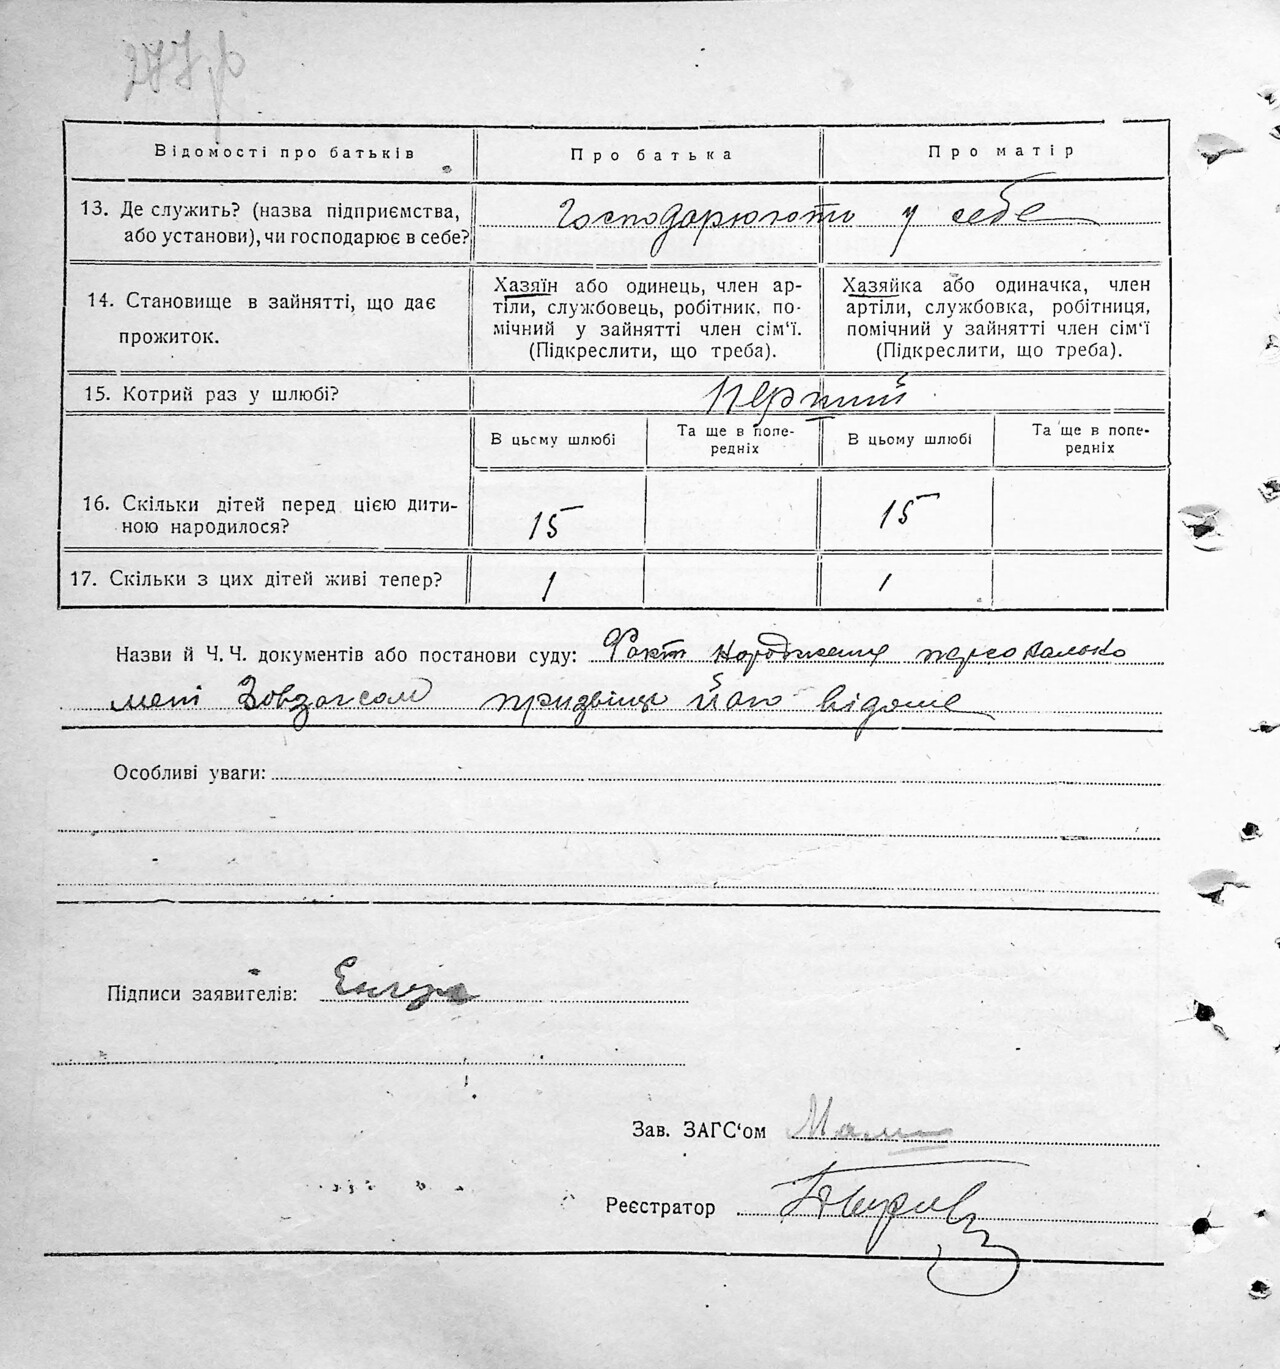 277 р
Відомості про батьків
Про батька
Про матір
13. Де служить? (назва підприємства,
або установи), чи господарює в себе?
Господарюють у себе
14. Становище в зайнятті, що дає
прожиток.
Хазяїн або одинець, член ар-
тіли, службовець, робітник, по-
мічний у зайнятті член сім‘ї.
(Підкреслити, що треба).
Хазяйка або одиначка, член
артіли, службовка, робітниця,
помічний у зайнятті член сім‘ї
(Підкреслити, що треба).
15. Котрий раз у шлюбі?
перший
В цьому шлюбі
Та ще в попе-
редніх
В цьому шлюбі
Та ще в попе-
редніх
16. Скільки дітей перед цією дити-
ною народилося?
15
15
17. Скільки з цих дітей живі тепер?
1
1
Назви й Ч. Ч. документів або постанови суду: Факт народження персонально
мені Завзагсом призвіще його відоме
Особливі уваги:
Підписи заявителів:
Зав. ЗАГС‘ом
Реєстратор